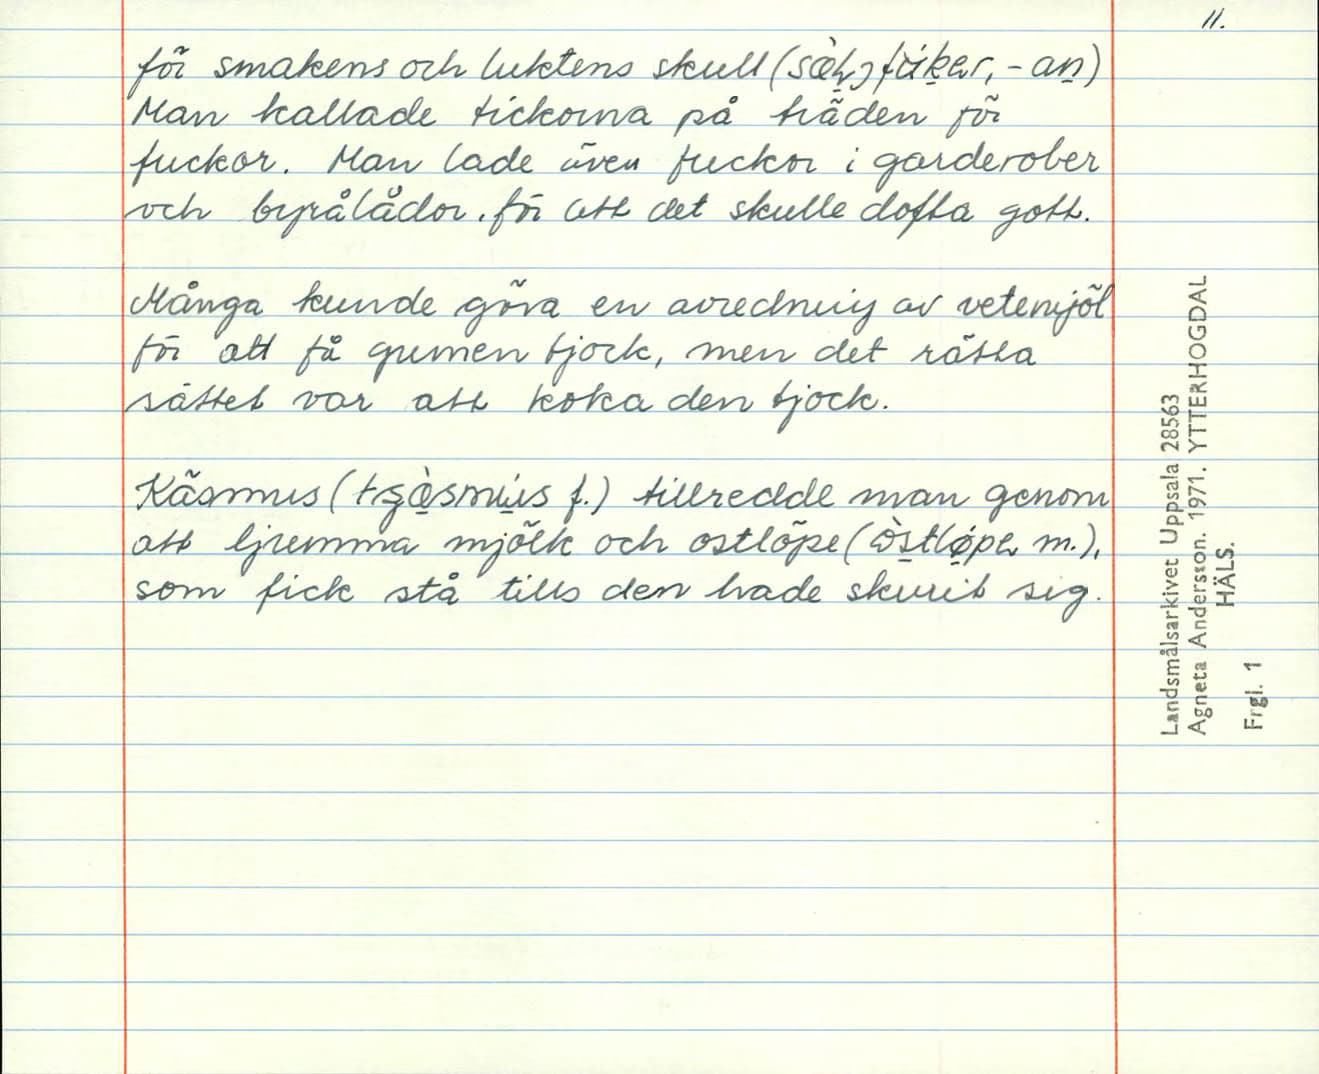 11.
för smakens och luktens skull (
Man kallade tickorna på träden för
fuckor. Man lade även fuckor i garderober
och byrålådor. för att det skulle dofta gott.
Många kunde göra en avredning av vetemjöl
för att få gumen tjock, men det rätta
sättet var att koka den tjock.
Käsmus ( f.) tillredde man genom
att ljumma mjölk och ostlöpe (òstlø̀pe m.),
som fick stå tills den hade skurit sig.
Landsmålsarkivet Uppsala 28563
Agneta Andersson. 1971. YTTERHOGDAL
HÄLS.
Frgl. 1